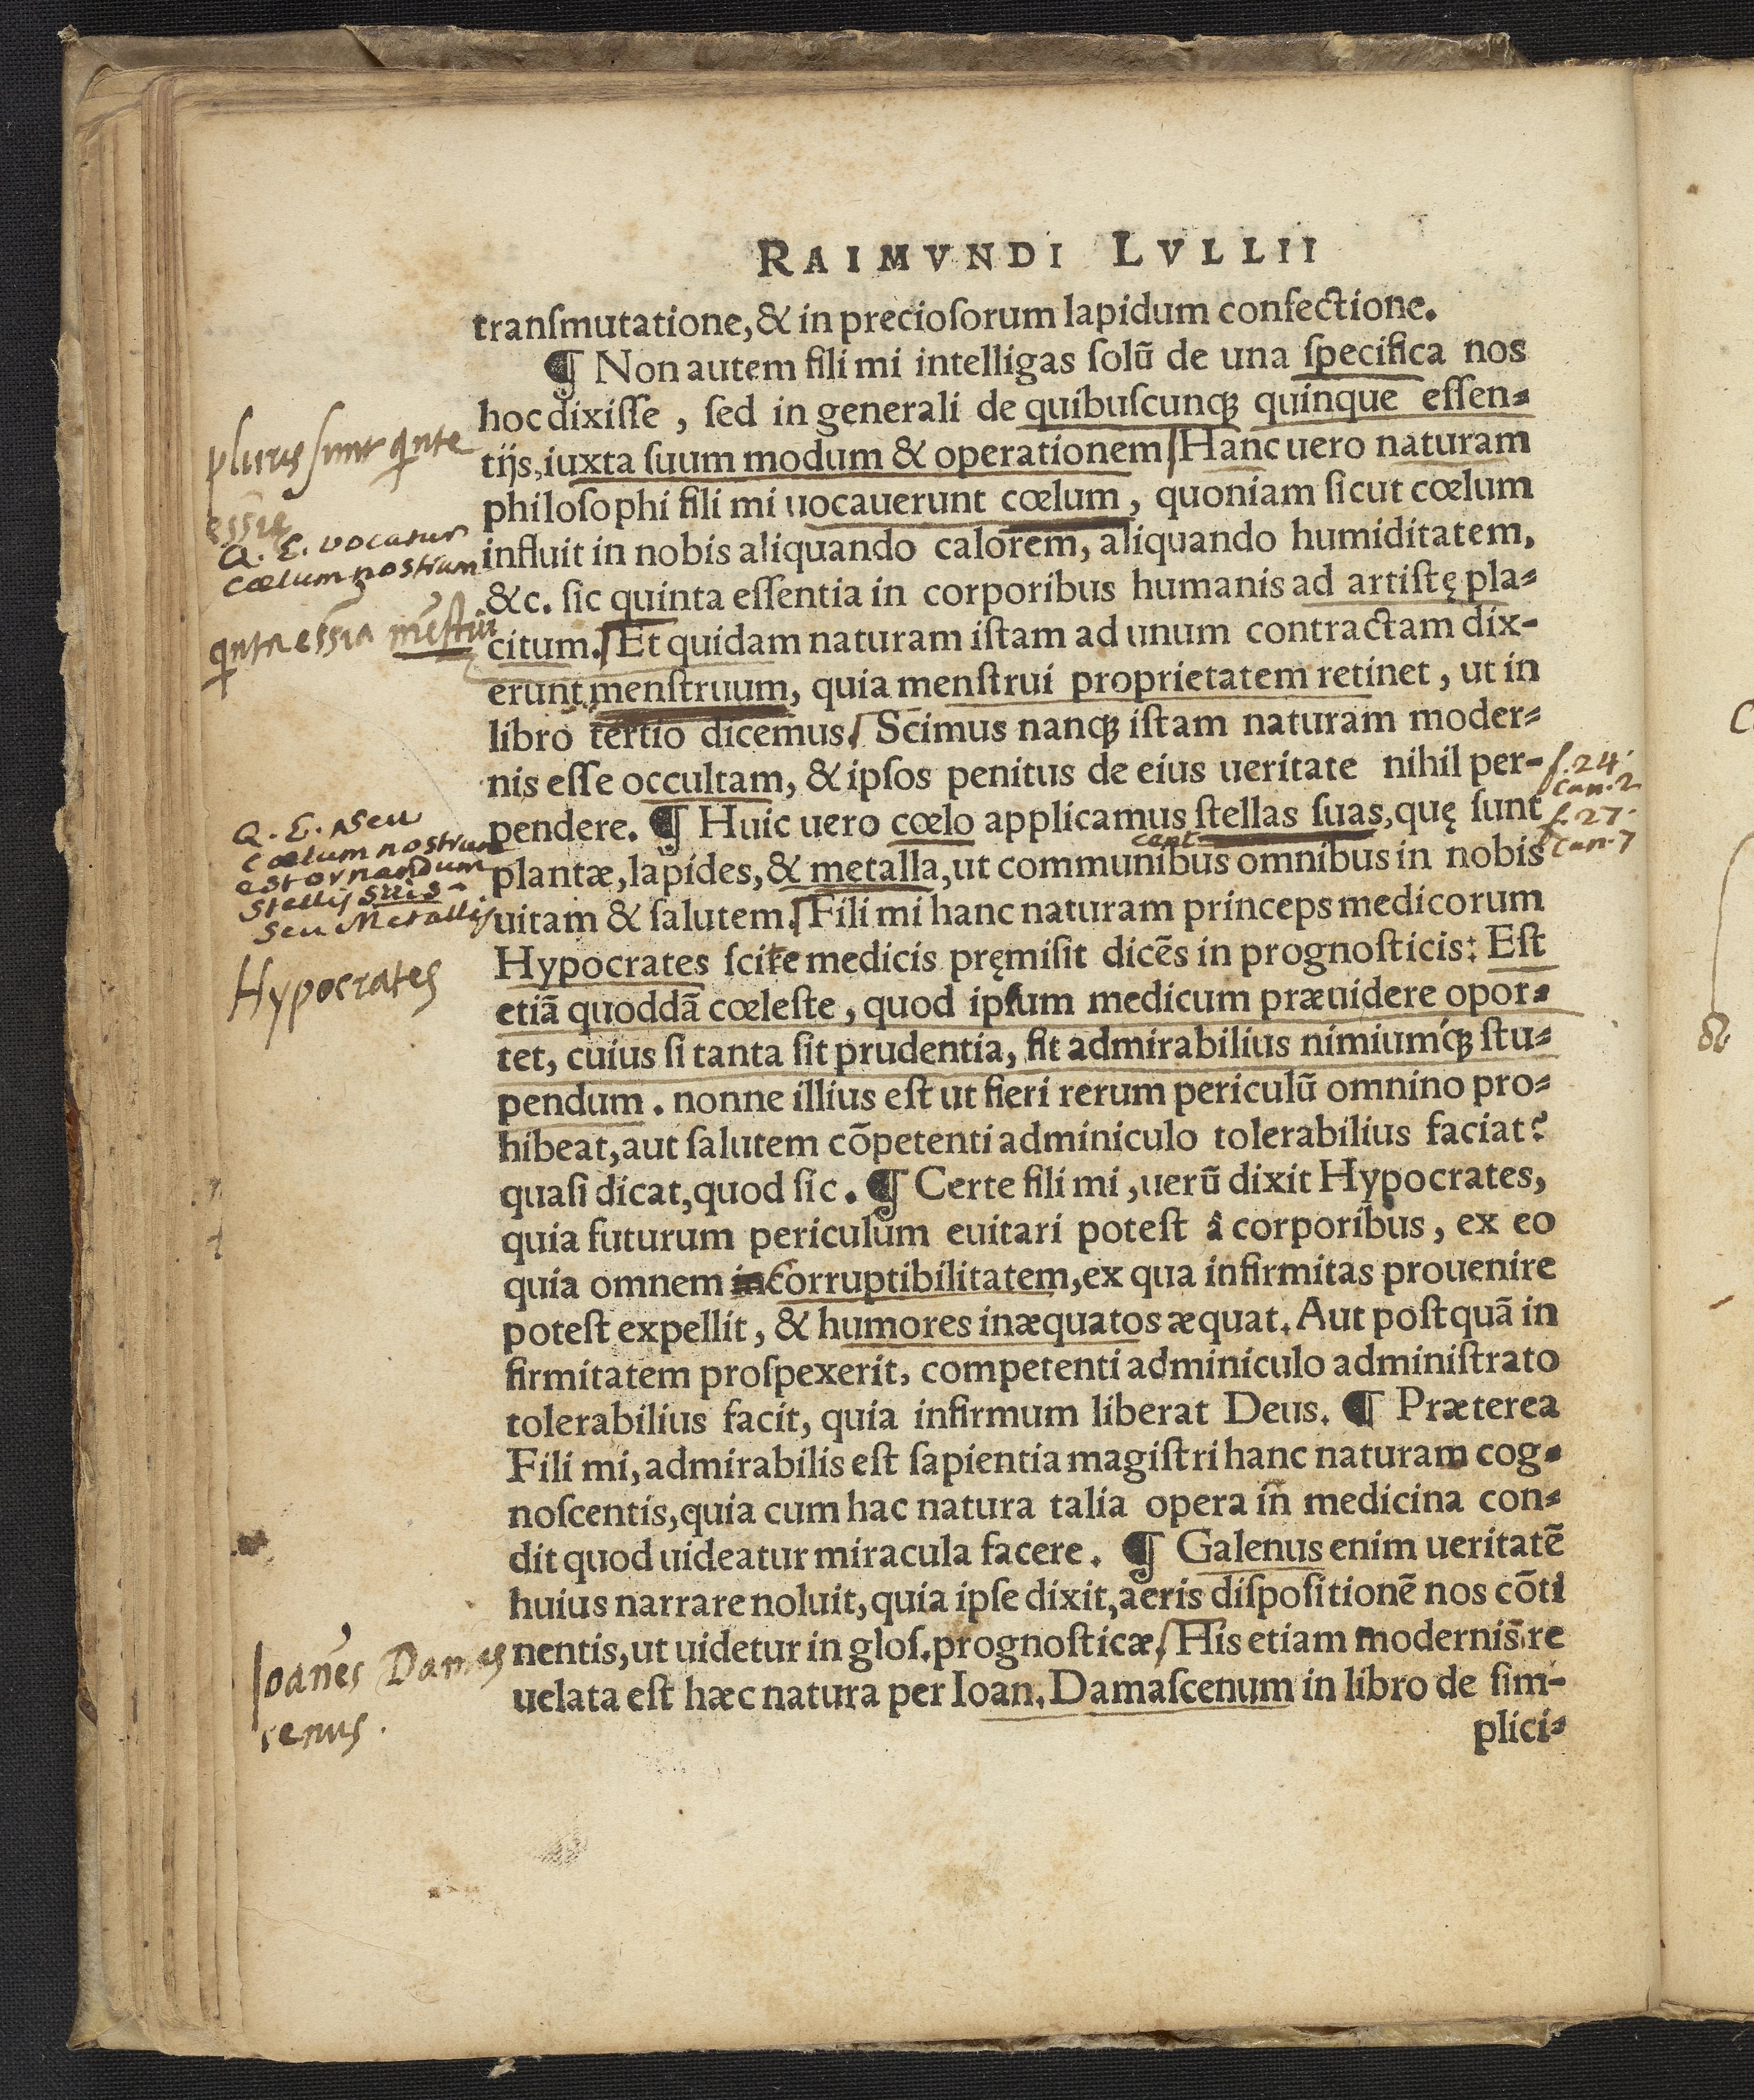 RAIMVNDI LVLLII
tranſmutatione, & in precioſorum lapidum confectione.
¶ Non autem fili mi intelligas ſolũ de una ſpecifica nos
hoc dixiſſe , ſed in generali de quibuſcunqꝫ quinque eſſen-
tijs, iuxta ſuum modum & operationem / Hanc uero naturam
philoſophi fili mi uocauerunt cœlum , quoniam ſicut cœlum
influit in nobis aliquando calorem, aliquando humiditatem,
&c. ſic quinta eſſentia in corporibus humanis ad artiſtę pla-
citum. / Et quidam naturam iſtam ad unum contractam dix-
erunt menſtruum, quia menſtrui proprietatem retinet , ut in
libro tertio dicemus / Scimus nanqꝫ iſtam naturam moder-
nis eſſe occultam, & ipſos penitus de eius ueritate nihil per-
pendere. ¶ Huic uero cœlo applicamus ſtellas ſuas, quę ſunt
plantæ, lapides, & metalla, ut communibus omnibus in nobis
cent
uitam & ſalutem. / Fili mi hanc naturam princeps medicorum
Hypocrates ſcite medicis pręmiſit dicẽs in prognoſticis: Eſt
etiã quoddã cœleſte , quod ipſum medicum præuidere opor-
tet, cuius ſi tanta ſit prudentia, fit admirabilius nimiumq́ꝫ ſtu-
pendum . nonne illius eſt ut fieri rerum periculũ omnino pro-
hibeat, aut ſalutem cõpetenti adminiculo tolerabilius faciat?
quaſi dicat, quod ſic . ¶ Certe fili mi , uerũ dixit Hypocrates,
quia futurum periculum euitari poteſt â corporibus , ex eo
quia omnem incorruptibilitatem, ex qua infirmitas prouenire
poteſt expellit , & humores inæquatos æquat. Aut poſtquã in
firmitatem proſpexerit, competenti adminiculo adminiſtrato
tolerabilius facit, quia infirmum liberat Deus. ¶ Præterea
Fili mi, admirabilis eſt ſapientia magiſtri hanc naturam cog-
noſcentis, quia cum hac natura talia opera in medicina con-
dit quod uideatur miracula facere . ¶ Galenus enim ueritatẽ
huius narrare noluit, quia ipſe dixit, aeris diſpoſitionẽ nos cõti
nentis, ut uidetur in gloſ. prognoſticæ / His etiam modernis re
uelata eſt hæc natura per Ioan. Damaſcenum in libro de ſim-
plici-
plures sunt qnte
essie
Q. E. vocatur
cœlum nostrum
qnta essia mẽstru
Q. E. seu
cœlum nostrum
est ornandum
Stellis suis
seu Metallis
Hypocrates
Ioanẽs Damas
cenus.
f. 24.
Can. 2
f. 27.
Can. 7